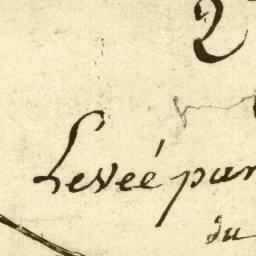 2
Leveé par
du